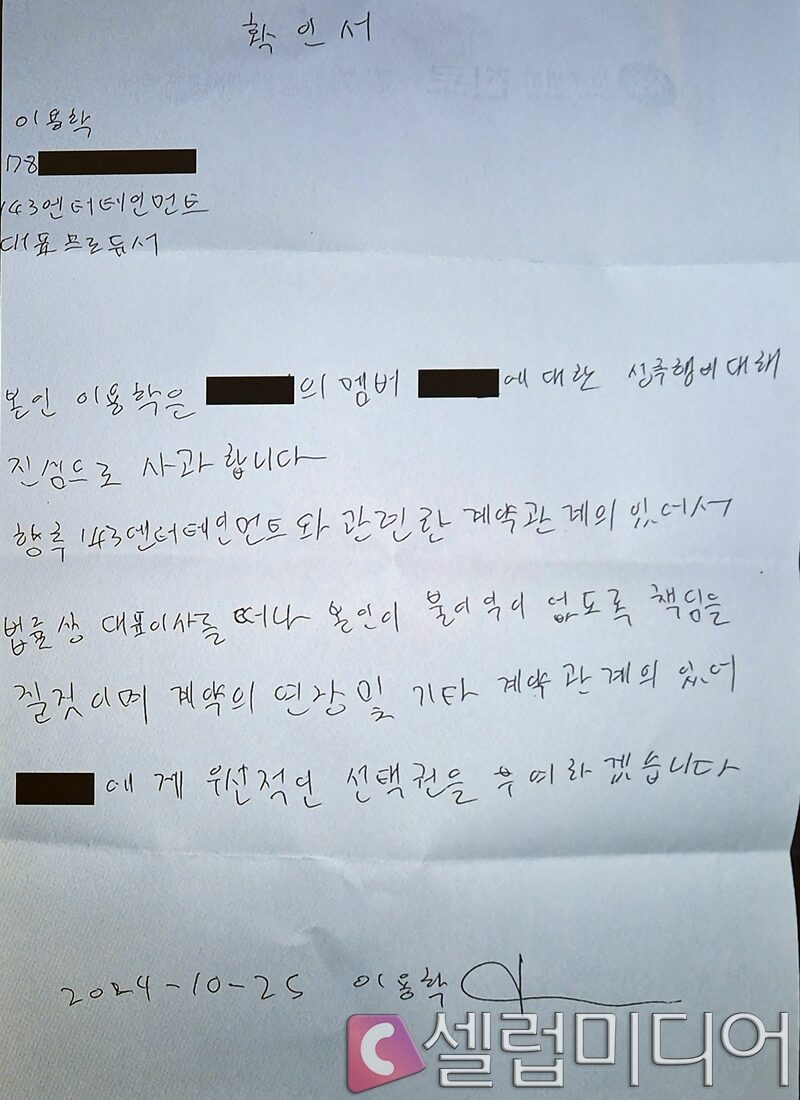 확인서
이용학
178
143엔터테인먼트
대표프로듀서
본인 이용학은 의 멤버 에 대한 성추행에 대해
진심으로 사과합니다
향후 143엔터테인먼트와 관련한 계약관계의 있어서
법률상 대표이사를 떠나 본인이 불이익이 없도록 책임을
질것이며 계약의 연장 및 기타 계약관계의 있어
에게 우선적인 선택권을 부여하겠습니다
2024-10-25 이용학
셀럽미디어